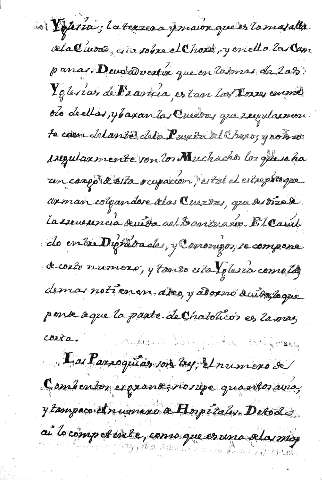 Yglesia; la tercera y maior que es la mas alta
de la Ciudad, esta sobre el Choro, y en ella las Cam
panas. Devo advertir que en las mas de las
Yglesias de Francia estan las Torres en med
io de ellas, y baxan las Cuerdas que regularmen
te caen delante de la Puerta del Choro; y como
regularmente son los Muchachos los que se ha
cen cargo de esta ocupacion, es tal el estrepito que
arman colgandose de las Cuerdas, que desdize de
la reverencia devida al Santuario. El Cavil
do entre Dignidades, y Canonigos, se compone
de corto numero, y tanto esta Yglesia como las
demas no tienen aseo, y adorno devido, lo que
pende de que la parte de Chatolicos es la mas
corta.
Las Parroquias son tres; el numero de
Combentos es grande; no supe quantos avia,
y tampoco el numero de Hospitales. De todo
ai lo competente, como que es una de las mej